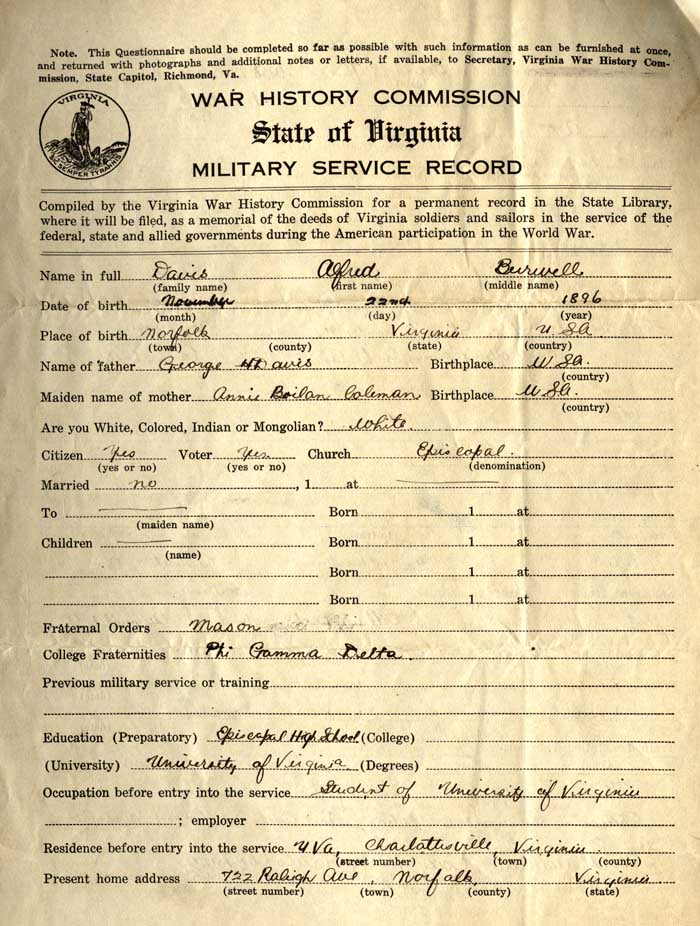 Note. This Questionnaire should be completed so far as possible with such information as can be furnished at once,
and returned with photographs and additional notes or letters, if available, to Secretary, Virginia War History Com-
mission, State Capitol, Richmond, Va.
VIRGINIA
SIC SEMPER TYRANNIS
WAR HISTORY COMMISSION
State of Virginia
MILITARY SERVICE RECORD
Compiled by the Virginia War History Commission for a permanent record in the State Library,
where it will be filed, as a memorial of the deeds of Virginia soldiers and sailors in the service of the
federal, state and allied governments during the American participation in the World War.
Name in full Davis Alfred Burwell
(family name) (first name) (middle name)
Date of birth November 22nd 1896
(month) (day) (year)
Place of birth Norfolk Virginia U SA
(town) (county) (state) (country)
Name of father George H Davis Birthplace U SA.
(country)
Maiden name of mother Annie Boilan Coleman Birthplace U SA.
(country)
Are you White, Colored, Indian or Mongolian? White
Citizen Yes Voter Yes Church Episcopal.
(yes or no) (yes or no) (denomination)
Married no , 1 at
To Born 1 at
(maiden name)
Children Born 1 at
(name)
Born 1 at
Born 1 at
Fraternal Orders Mason
College Fraternities Phi Gamma Delta.
Previous military service or training
Education (Preparatory) Episcopal High School (College)
(University) University of Virginia (Degrees)
Occupation before entry into the service Student of University of Virginia
; employer
Residence before entry into the service U Va, Charlottesville, Virginia
(street number) (town) (county)
Present home address 722 Raleigh Ave, Norfolk, Virginia
(street number) (town) (county) (state)